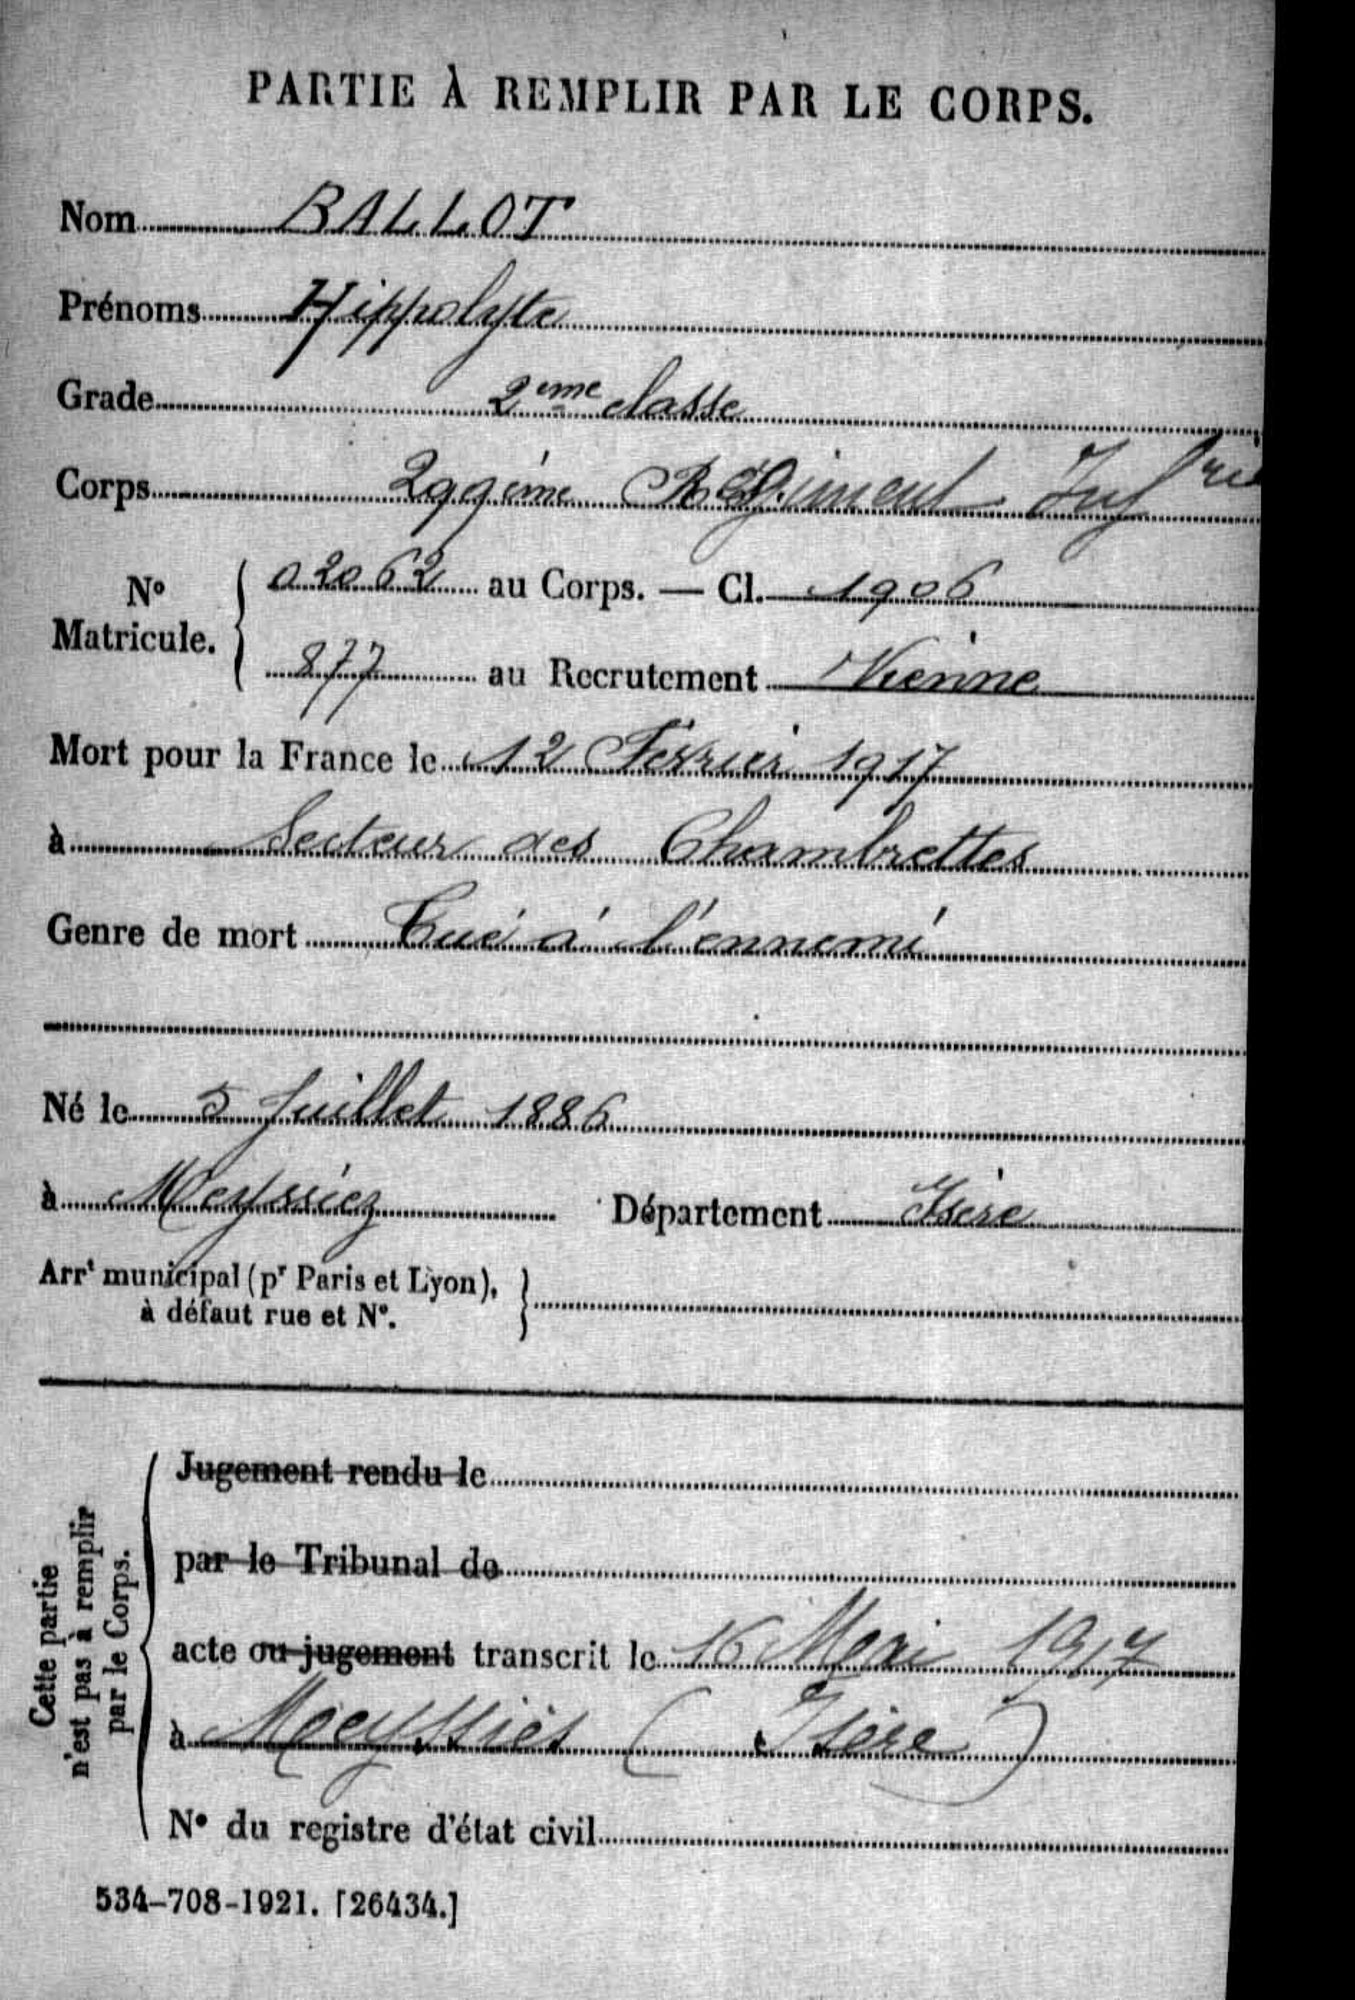 PARTIE À REMPLIR PAR LE CORPS.
Nom BALLOT
Prénoms Hippolyte
Grade 2ème classe
Corps 299ème Régiment Infrie
No Matricule. 02062 au Corps. — Cl. 1906
877 au Recrutement Vienne
Mort pour la France le 12 Février 1917
à Secteur des Chambrettes
Genre de mort Tué à l'ennemi
Né le 5 Juillet 1886
à Meyssiez Département Isère
Arrt municipal (pr Paris et Lyon),
à défaut rue et N°.
Cette partie
n'est pas à remplir
par le Corps.
Jugement rendu le
par le Tribunal de
acte ou jugement transcrit le 16 Mai 1917
à Meyssiés (Isère)
N° du registre d'état civil
534-708-1921. [26434.]